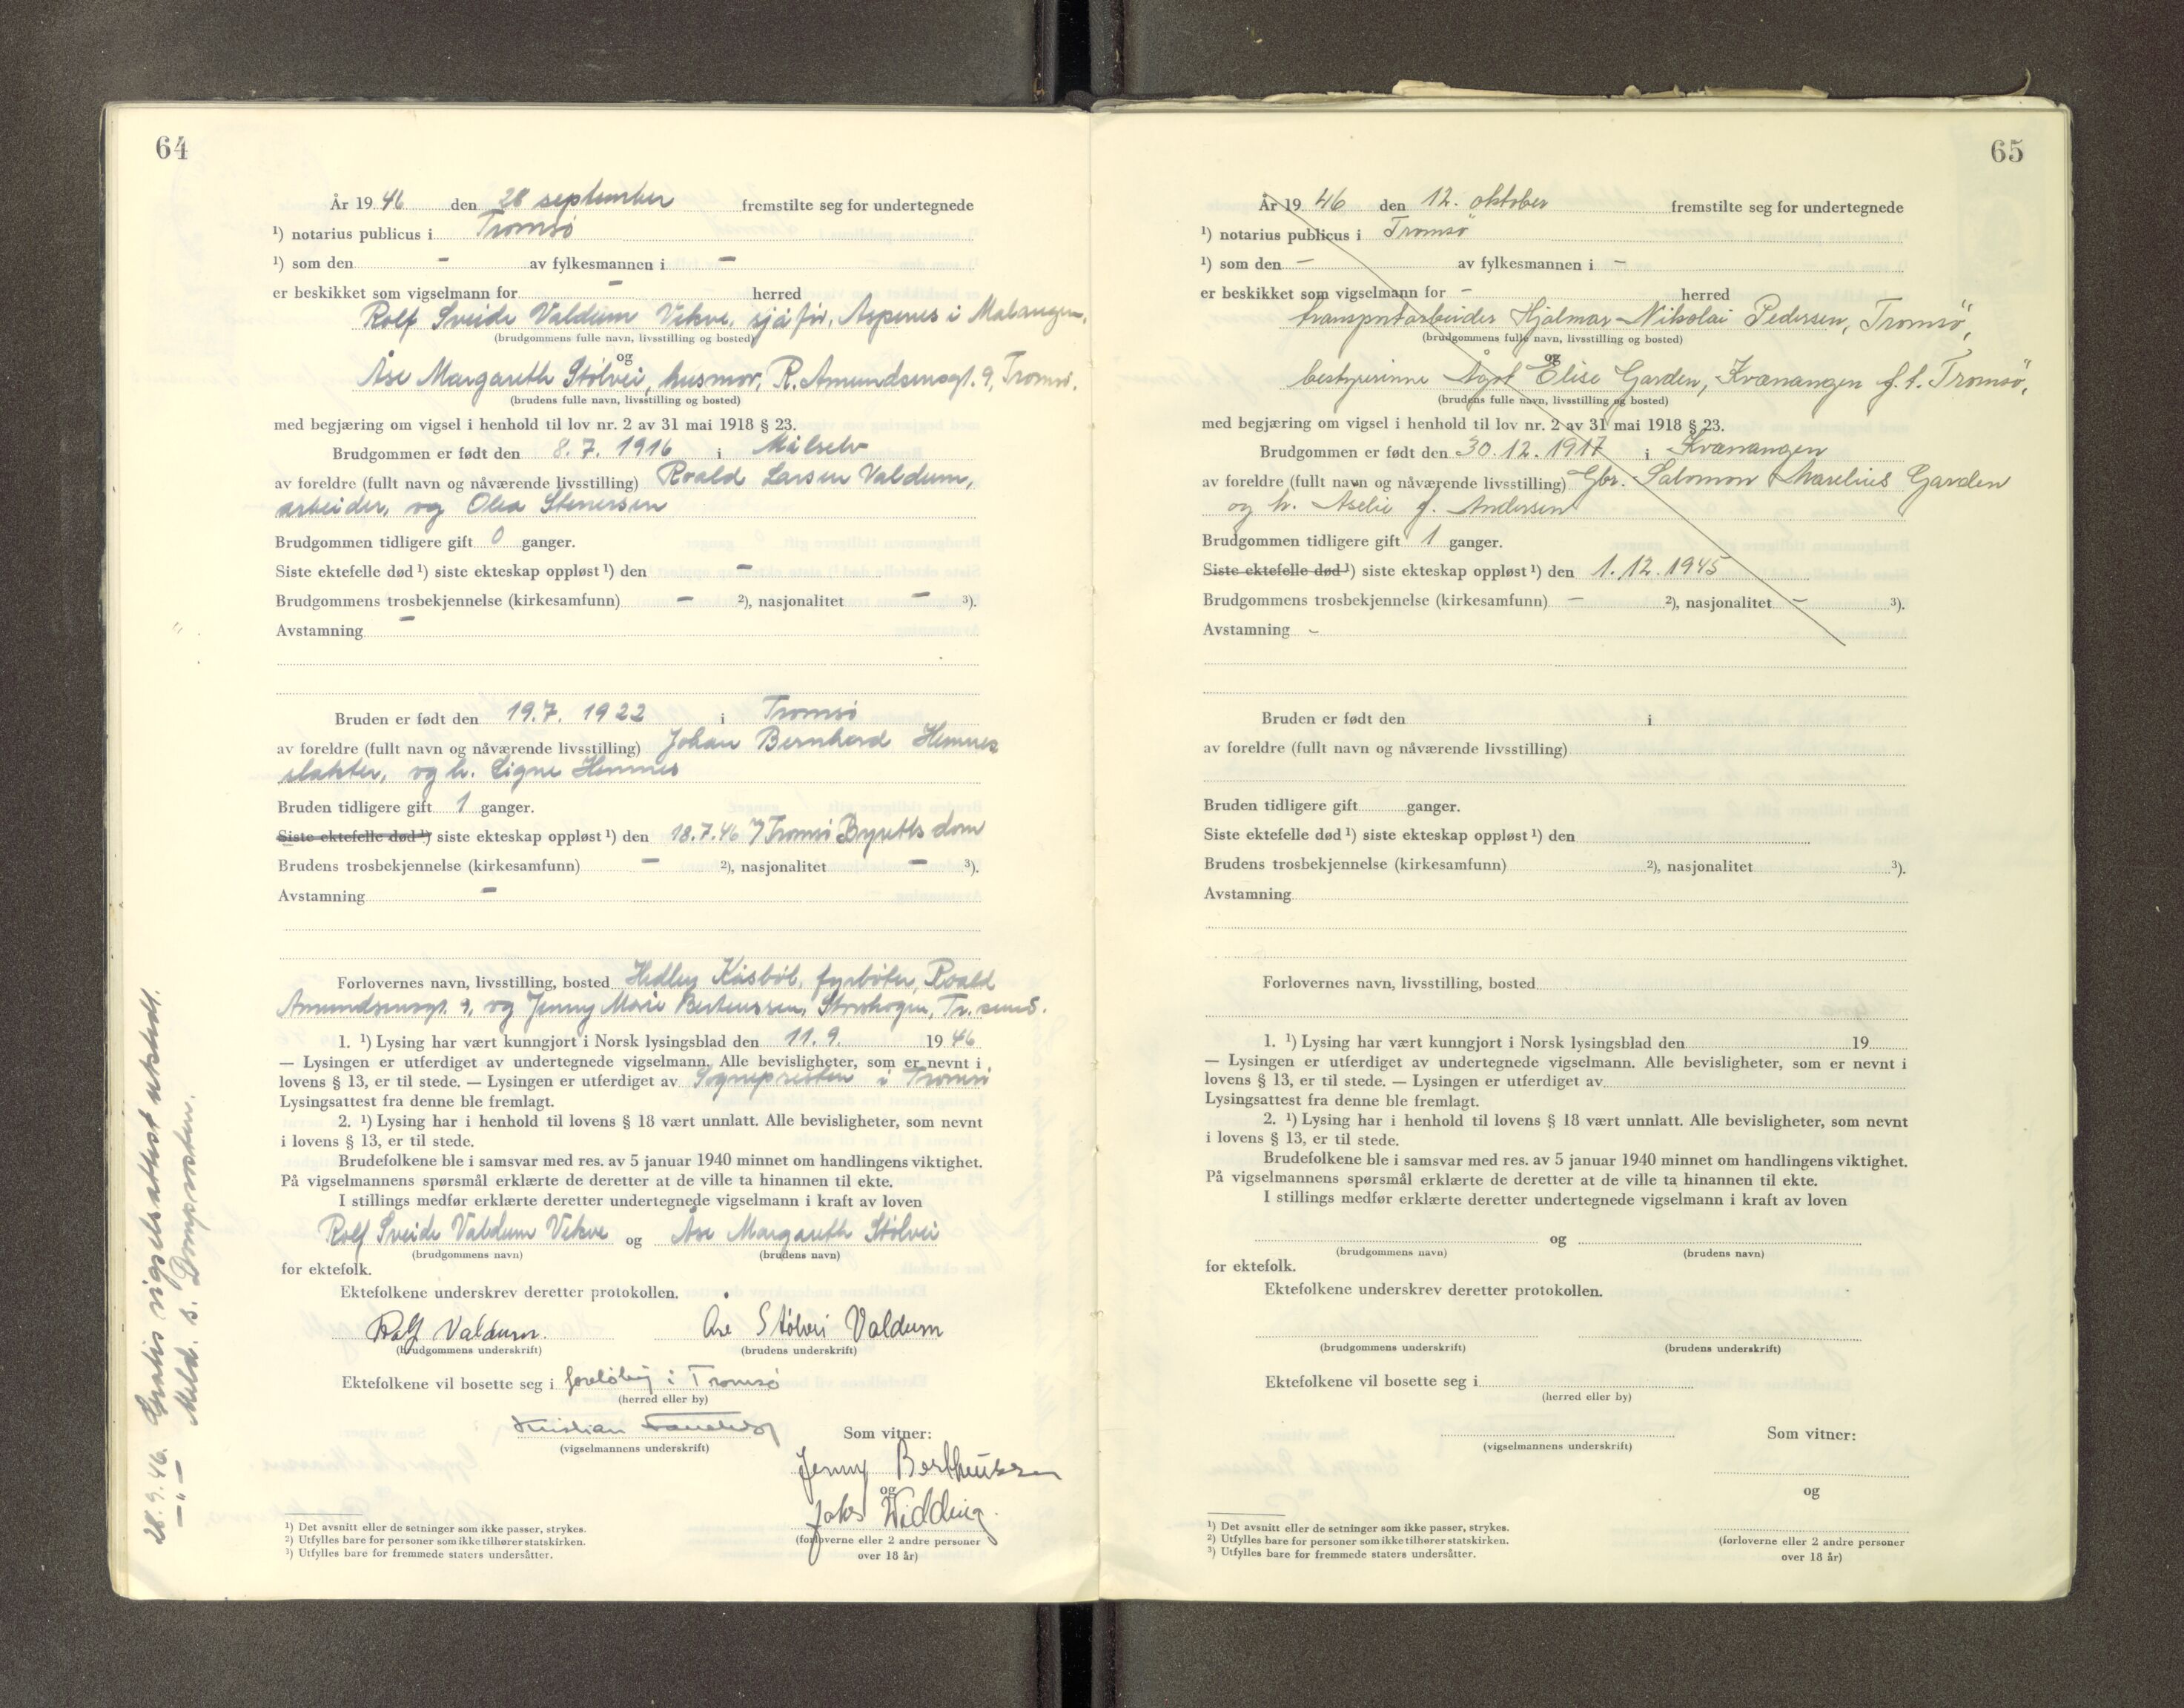 64
År 19 46 den 28 september fremstilte seg for undertegnede
¹) notarius publicus i Tromsø
¹) som den – av fylkesmannen i –
er beskikket som vigselmann for – herred
Rolf Sveide Valdum Vekve, sjåfør, Aspenes i Malangen,
(brudgommens fulle navn, livsstilling og bosted)
og
Åse Margareth Stølvei, husmor, R. Amundsensgt. 9, Tromsø.
(brudens fulle navn, livsstilling og bosted)
med begjæring om vigsel i henhold til lov nr. 2 av 31 mai 1918 § 23.
Brudgommen er født den 8.7. 1916 i Målselv
av foreldre (fullt navn og nåværende livsstilling) Roald Larsen Valdum,
arbeider, og Olea Stenersen
Brudgommen tidligere gift 0 ganger.
Siste ektefelle død ¹) siste ekteskap oppløst ¹) den –
Brudgommens trosbekjennelse (kirkesamfunn) – ²), nasjonalitet – ³).
Avstamning –
Bruden er født den 19.7. 1922 i Tromsø
av foreldre (fullt navn og nåværende livsstilling) Johan Bernhard Hemnes
slakter, og h. Signe Hemnes
Bruden tidligere gift 1 ganger.
Siste ektefelle død ¹) siste ekteskap oppløst ¹) den 18.7.46 Tromsø Byretts dom
Brudens trosbekjennelse (kirkesamfunn) – ²), nasjonalitet – ³).
Avstamning –
Forlovernes navn, livsstilling, bosted Hedley Kåsbøl, fyrbøter, Roald
Amundsensgt. 9, og Jenny Marie Berteussen, Storskogen, Tr.sund.
1. ¹) Lysing har vært kunngjort i Norsk lysingsblad den 11.9. 19 46
— Lysingen er utferdiget av undertegnede vigselmann. Alle bevisligheter, som er nevnt i
lovens § 13, er til stede. — Lysingen er utferdiget av Sognepresten i Tromsø
Lysingsattest fra denne ble fremlagt.
2. ¹) Lysing har i henhold til lovens § 18 vært unnlatt. Alle bevisligheter, som nevnt
i lovens § 13, er til stede.
Brudefolkene ble i samsvar med res. av 5 januar 1940 minnet om handlingens viktighet.
På vigselmannens spørsmål erklærte de deretter at de ville ta hinannen til ekte.
I stillings medfør erklærte deretter undertegnede vigselmann i kraft av loven
Rolf Sveide Valdum Vekve og Åse Margareth Stølvei
(brudgommens navn) (brudens navn)
for ektefolk.
Ektefolkene underskrev deretter protokollen.
Rolf Valdum. Åse Stølvei Valdum
(brudgommens underskrift) (brudens underskrift)
Ektefolkene vil bosette seg i foreløbig i Tromsø
(herred eller by)
Kristian
(vigselmannens underskrift)
Som vitner:
Jenny Bertheussen
og
Widding
(forloverne eller 2 andre personer
over 18 år)
¹) Det avsnitt eller de setninger som ikke passer, strykes.
²) Utfylles bare for personer som ikke tilhører statskirken.
³) Utfylles bare for fremmede staters undersåtter.
28.9.46. Gratis vigselsattest utstedt.
–"– Meld. s. Domprosten.
65
År 19 46 den 12. oktober fremstilte seg for undertegnede
¹) notarius publicus i Tromsö
¹) som den – av fylkesmannen i –
er beskikket som vigselmann for – herred
transportarbeider Hjalmar Nikolai Pedersen, Tromsö,
(brudgommens fulle navn, livsstilling og bosted)
og
bestyrerinne Ågot Elise Garden, Kvænangen f.t. Tromsö,
(brudens fulle navn, livsstilling og bosted)
med begjæring om vigsel i henhold til lov nr. 2 av 31 mai 1918 § 23.
Brudgommen er født den 30.12.1917 i Kvænangen
av foreldre (fullt navn og nåværende livsstilling) Gbr. Salomon Marelius Garden
og h. Aselie f. Andersen
Brudgommen tidligere gift 1 ganger.
Siste ektefelle død ¹) siste ekteskap oppløst ¹) den 1.12.1945
Brudgommens trosbekjennelse (kirkesamfunn) – ²), nasjonalitet – ³).
Avstamning –
Bruden er født den i
av foreldre (fullt navn og nåværende livsstilling)
Bruden tidligere gift ganger.
Siste ektefelle død ¹) siste ekteskap oppløst ¹) den
Brudens trosbekjennelse (kirkesamfunn) ²), nasjonalitet ³).
Avstamning
Forlovernes navn, livsstilling, bosted
1. ¹) Lysing har vært kunngjort i Norsk lysingsblad den 19
— Lysingen er utferdiget av undertegnede vigselmann. Alle bevisligheter, som er nevnt i
lovens § 13, er til stede. — Lysingen er utferdiget av
Lysingsattest fra denne ble fremlagt.
2. ¹) Lysing har i henhold til lovens § 18 vært unnlatt. Alle bevisligheter, som nevnt
i lovens § 13, er til stede.
Brudefolkene ble i samsvar med res. av 5 januar 1940 minnet om handlingens viktighet.
På vigselmannens spørsmål erklærte de deretter at de ville ta hinannen til ekte.
I stillings medfør erklærte deretter undertegnede vigselmann i kraft av loven
og
(brudgommens navn) (brudens navn)
for ektefolk.
Ektefolkene underskrev deretter protokollen.
(brudgommens underskrift) (brudens underskrift)
Ektefolkene vil bosette seg i
(herred eller by)
(vigselmannens underskrift)
Som vitner:
og
(forloverne eller 2 andre personer
over 18 år)
¹) Det avsnitt eller de setninger som ikke passer, strykes.
²) Utfylles bare for personer som ikke tilhører statskirken.
³) Utfylles bare for fremmede staters undersåtter.